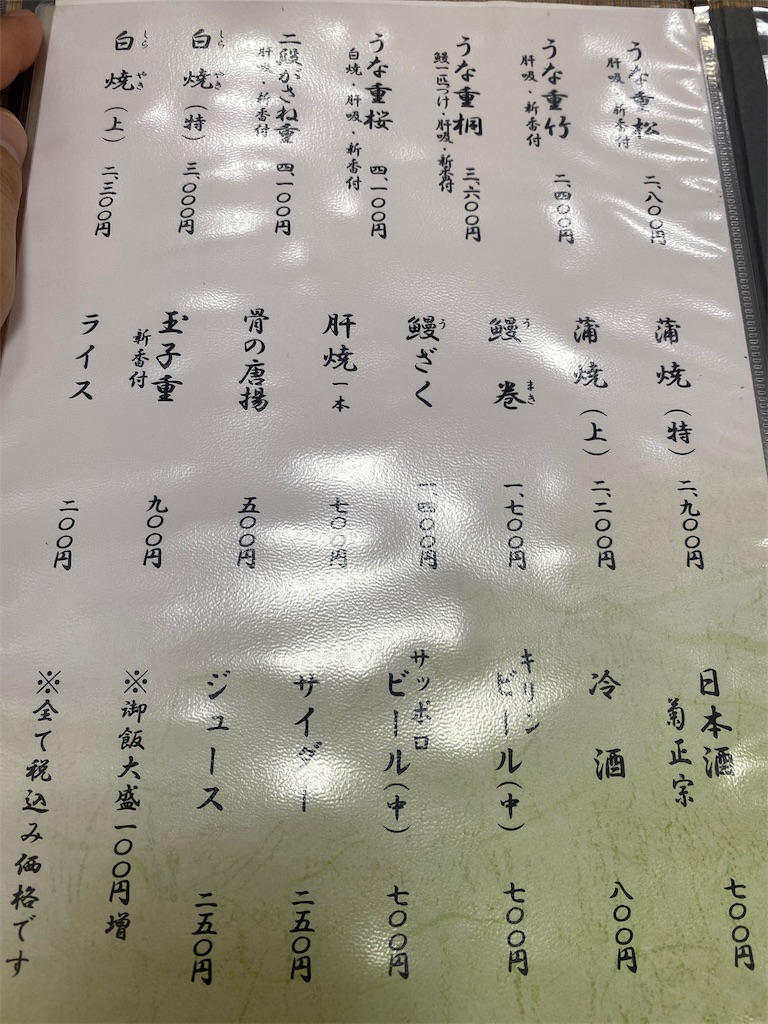 うな重松
肝吸・新香付
二、八〇〇円
うな重竹
肝吸・新香付
二、四〇〇円
うな重桐
鰻一匹つけ・肝吸・新香付
三、六〇〇円
うな重桜
白焼・肝吸・新香付
四、一〇〇円
二段がさね重
肝吸・新香付
四、一〇〇円
白焼(特)
しら やき
三、〇〇〇円
白焼(上)
しら やき
二、三〇〇円
蒲焼(特)
二、九〇〇円
蒲焼(上)
二、二〇〇円
鰻巻
う まき
一、七〇〇円
鰻ざく
う
一、四〇〇円
肝焼一本
七〇〇円
骨の唐揚
五〇〇円
玉子重
新香付
九〇〇円
ライス
二〇〇円
日本酒
菊正宗
七〇〇円
冷酒
八〇〇円
キリン
ビール(中)
七〇〇円
サッポロ
ビール(中)
七〇〇円
サイダー
二五〇円
ジュース
二五〇円
※御飯大盛一〇〇円増
※全て税込み価格です